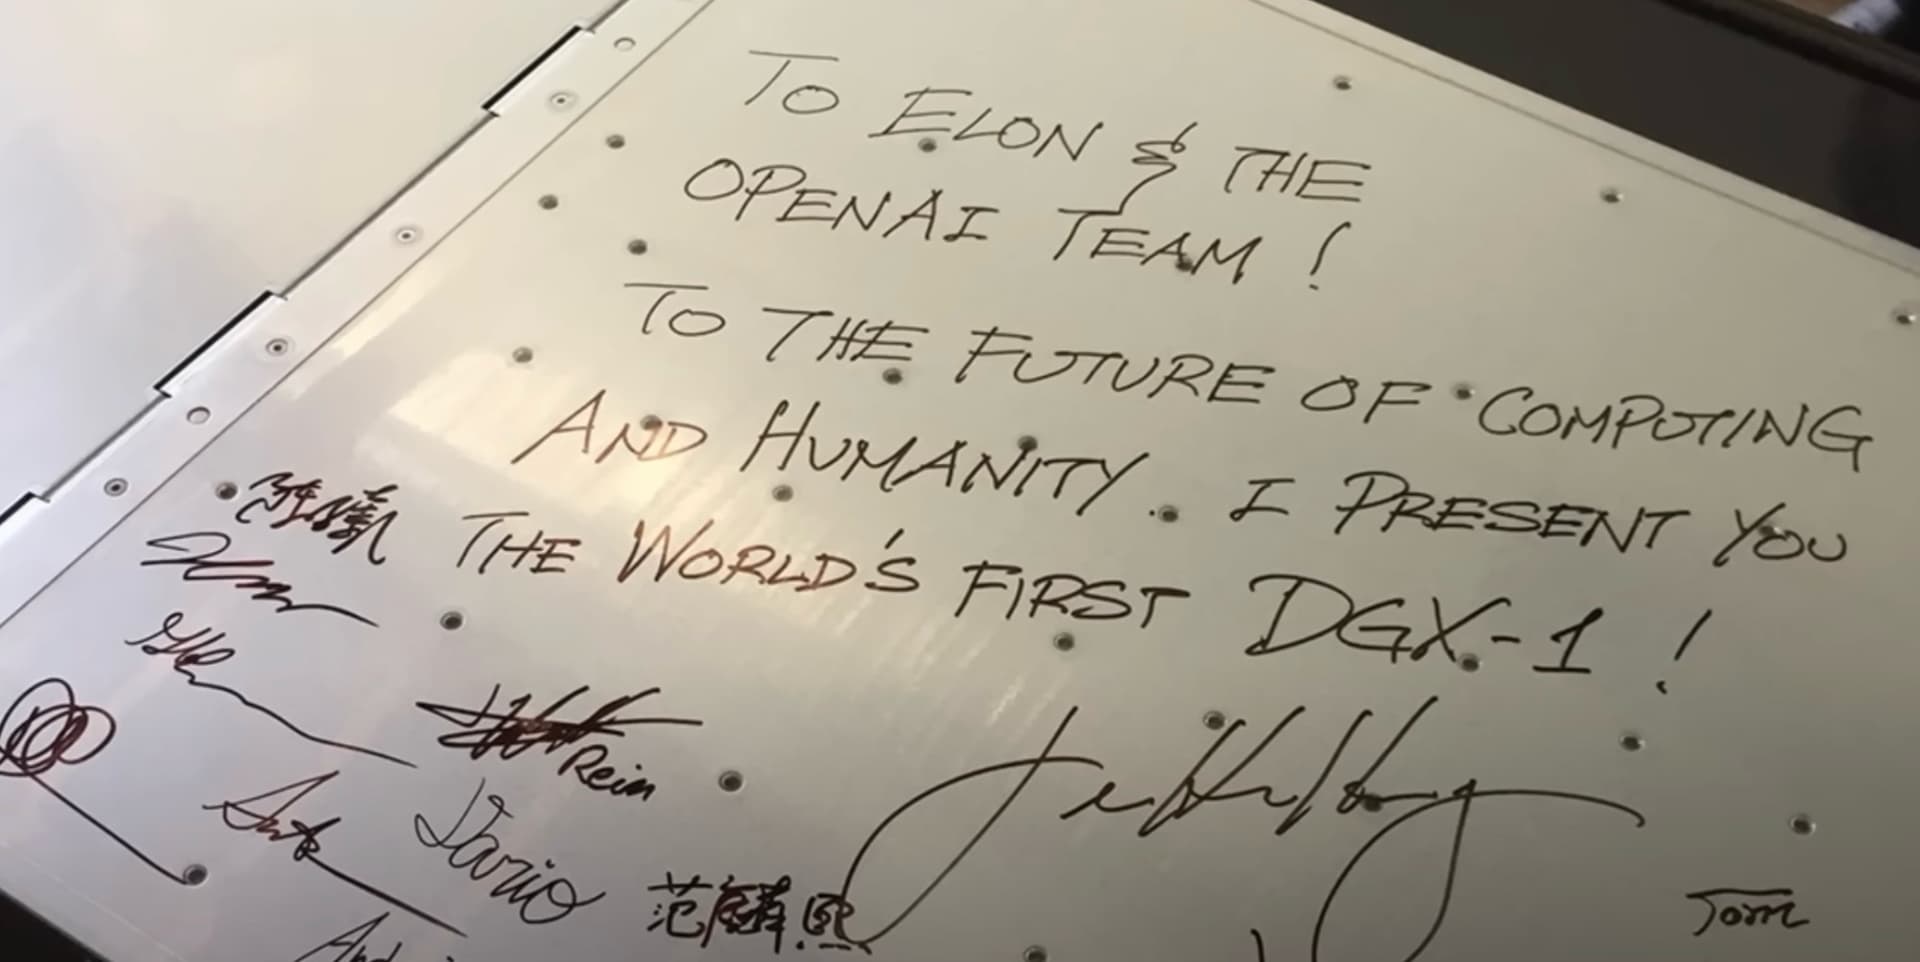 To ELON & THE
OPENAI TEAM!
To THE FUTURE OF COMPUTING
AND HUMANITY. I PRESENT YOU
THE WORLD'S FIRST DGX-1!
Rein
Dario
范麟熙
Tom